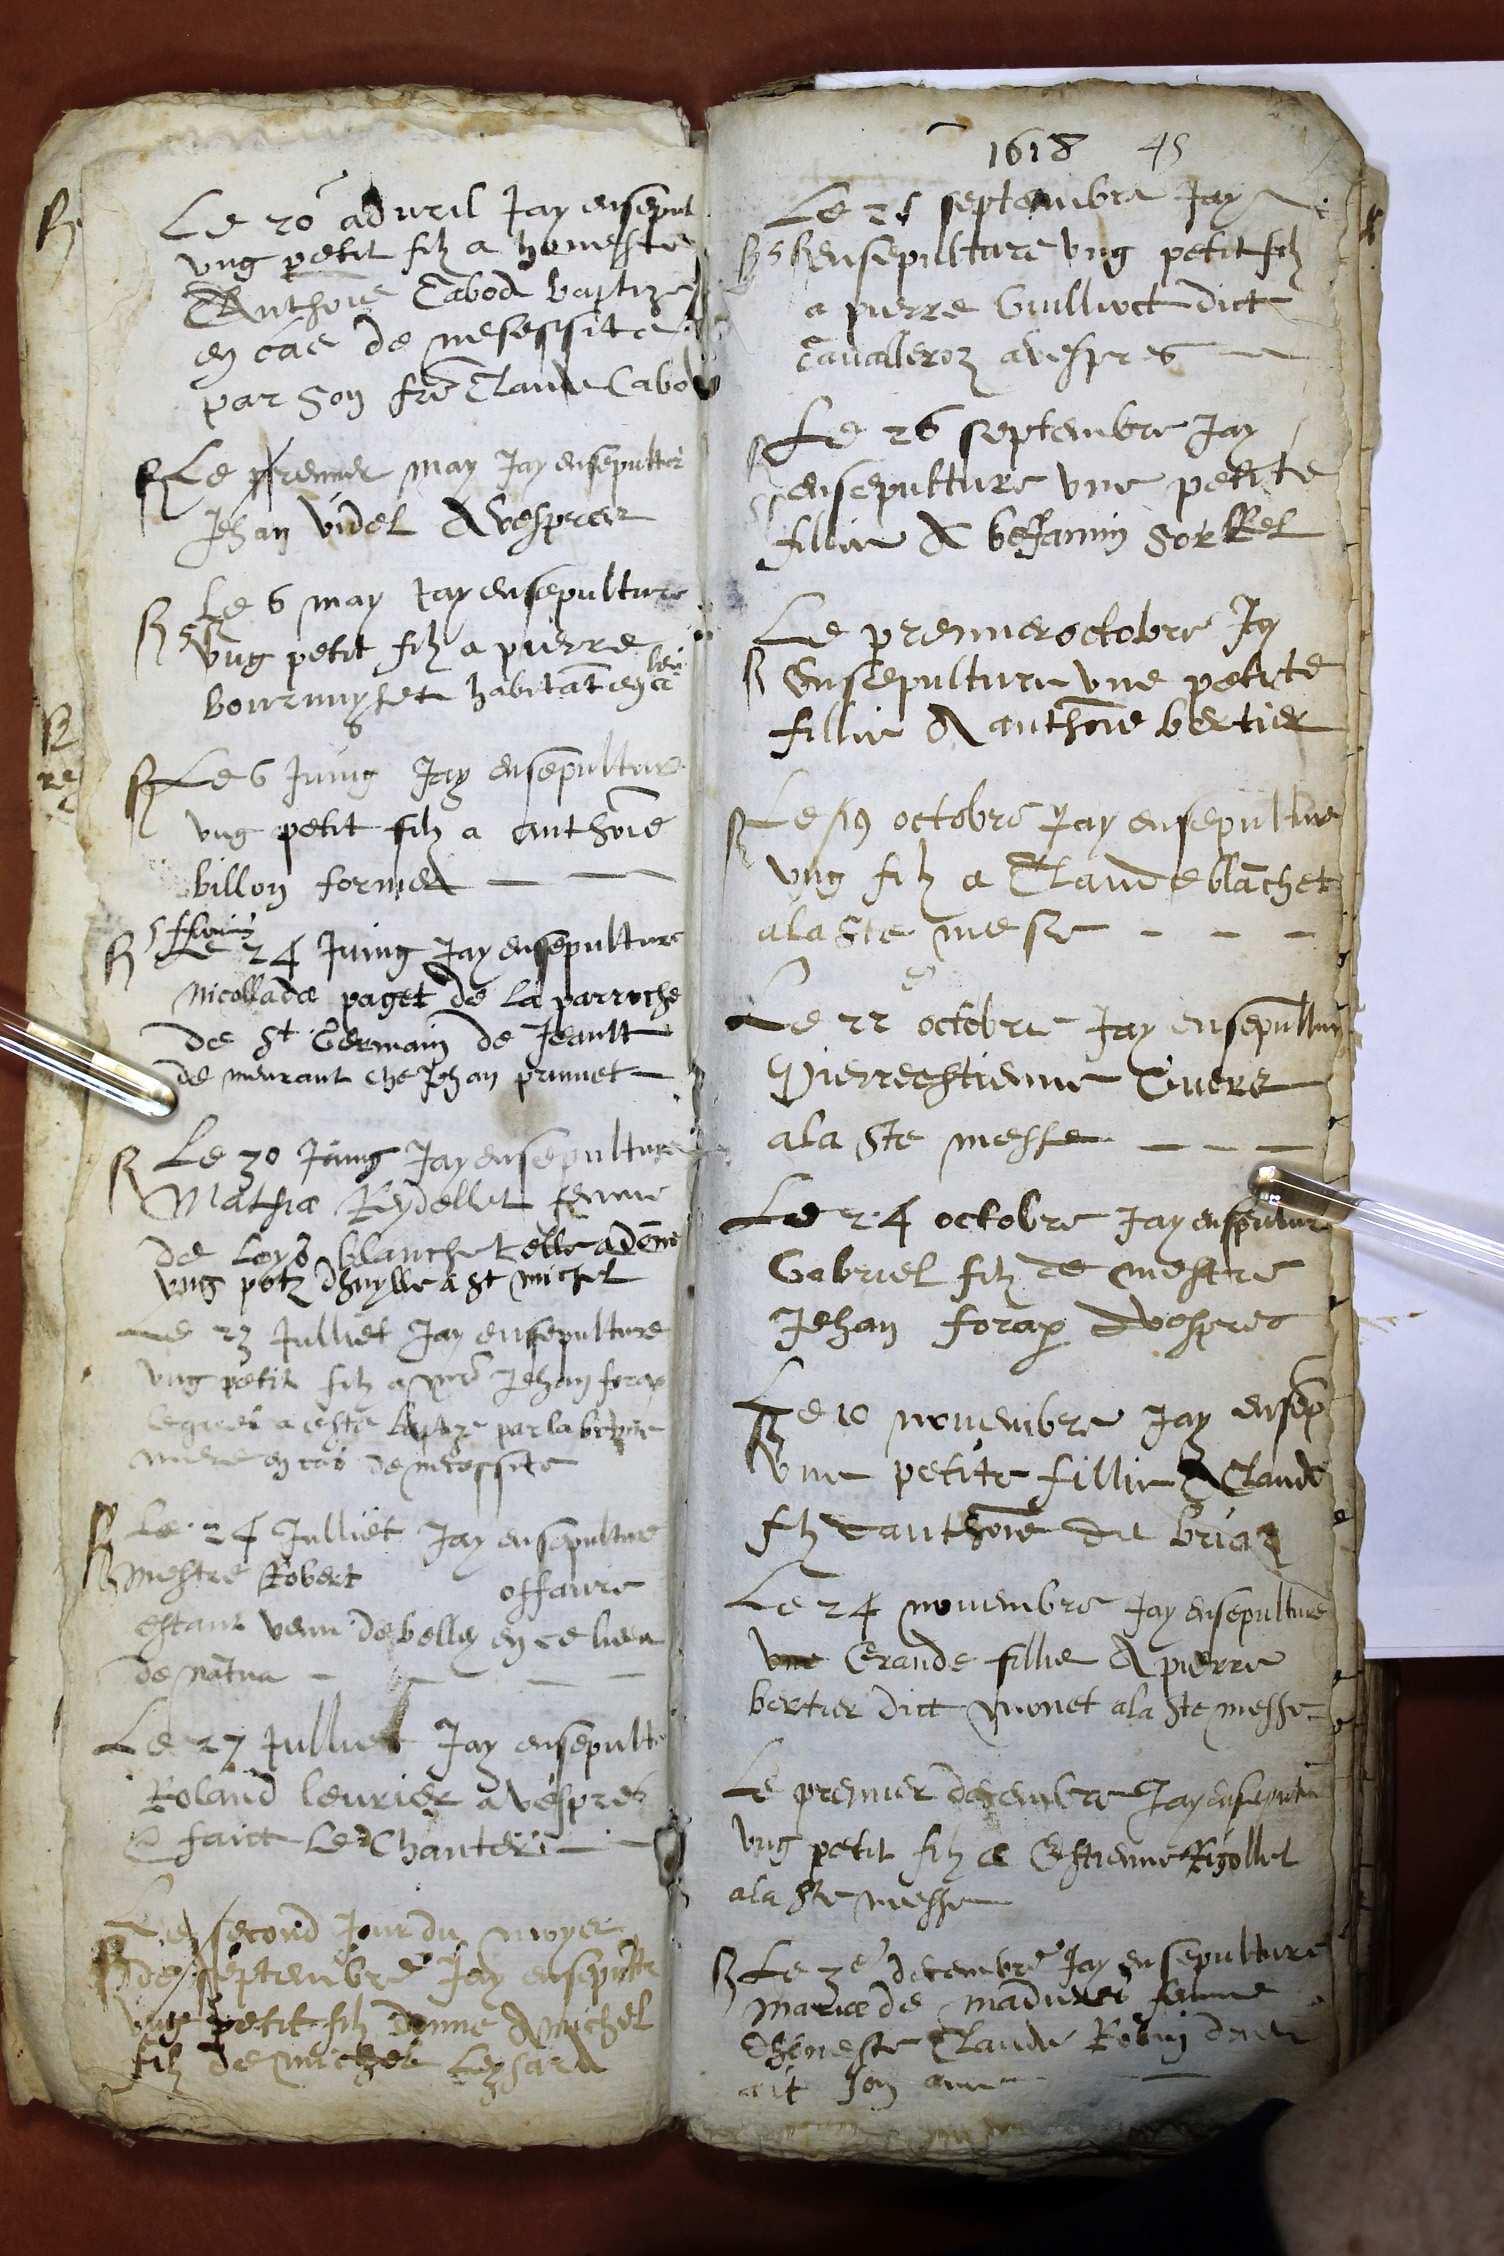 R
Le 20 advril Jay ensepul
ung petit filz a honneste
Anthoine Cabod baptize
en cas de nesessite
par son fre Claude Cabod
R Le premier may Jay ensepultur
Jehan Videl A vespres
R Le 6 may Jay ensepulture
ung petit filz a pierre
lieu
bourmyset habitant en ce
R Le 6 Juing Jay ensepulture
ung petit filz a anthoine
billon formier
R Le 24 Juing Jay ensepulture
Nicollada paget de la parroche
de St Germain de Jeault
de meurant che Jehan prunet
R Le 30 Juing Jay ensepulture
Mathia Reydellet femme
de Loys blanchet elle a done
ung potz dhuylle a St michel
Le 23 Julliet Jay ensepulture
ung petit filz a mre Jehan forax
lequel a este baptize par la
mere en cas de necessite
R Le 24 Julliet Jay ensepulture
mestre Robert offaure
estant venu de belley en ce lieu
de nantua
Le 27 Julliet Jay ensepultr
Roland leurier a vespres
faict Le Chanter
Le second Jour du moyes
R de septembre Jay ensepultr
ung petit filz donne A michel
filz de michel Leysard
1618 45
Le 25 septembre Jay
R ensepulture ung petit filz
a pierre Guilliect dict
Cavalleroz a vespres
Le 26 septembre Jay
ensepulture une petite
fillie A beJamin sorRel
Le premier octobre Jay
R Ensepulture une petite
fillie A anthoine bertier
R Le 19 octobre Jay ensepulture
ung filz a Claude blanchet
a la Ste messe
Le 22 octobre Jay ensepultur
Pierre estienne Cuerz
a la Ste messe
Le 24 octobre Jay ensepultur
Gabriel filz de mestre
Jehan forax A vespres
Le 10 novembre Jay ensep
R une petite fillie A Claude
filz d anthoine du briaz
Le 24 novembre Jay ensepulture
une Grande fillie A pierre
bertier dict monet a la Ste messe
Le premier decembre Jay ensepultur
ung petit filz a Estienne Rigollet
a la Ste messe
R Le 3e decembre Jay ensepulture
Maria de madurer femme
dhoneste Claude Robin dieu
ait son ame